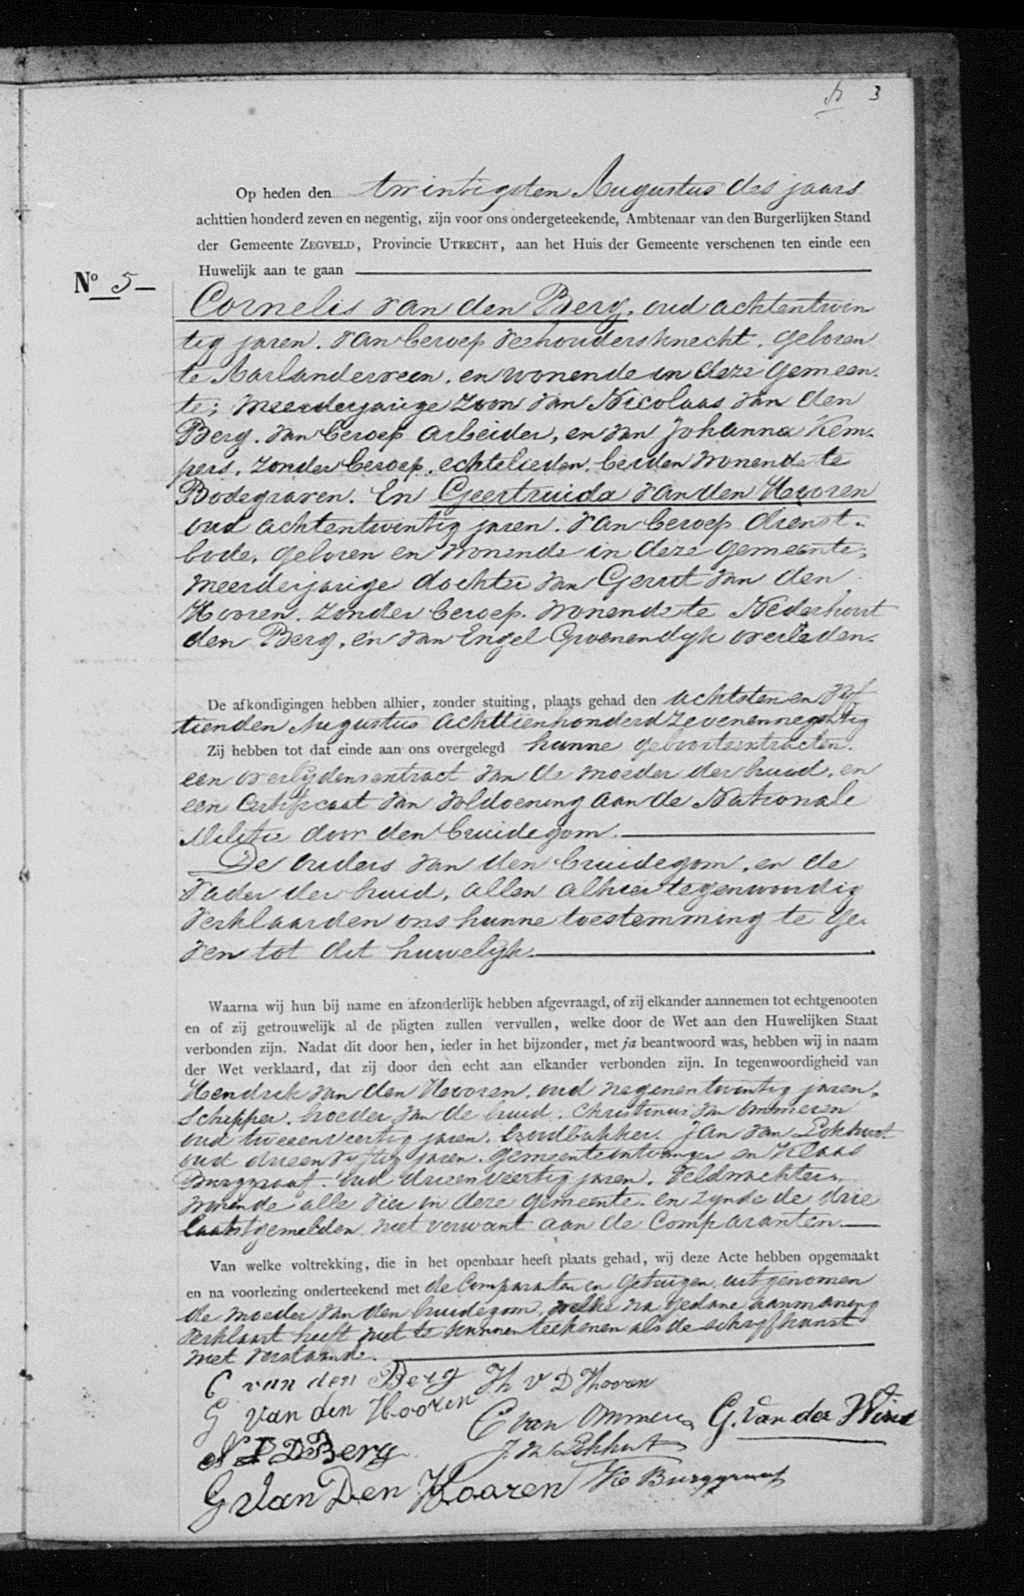 3
Op heden den twintigsten Augustus des jaars
achttien honderd zeven en negentig, zijn voor ons ondergeteekende, Ambtenaar van den Burgerlijken Stand
der Gemeente ZEGVELD, Provincie UTRECHT, aan het Huis der Gemeente verschenen ten einde een
Huwelijk aan te gaan
No 5
Cornelis van den Berg, oud achtentwin
tig jaren, van beroep veehoudersknecht, geboren
te Aarlanderveen, en wonende in deze gemeen-
te; meerderjarige zoon van Nicolaas van den
Berg, van beroep arbeider, en van Johanna Kem-
pers, zonder beroep, echtelieden, beiden wonende te
Bodegraven. En Geertruida van den Hooren
oud achtentwintig jaren, van beroep dienst-
bode, geboren en wonende in deze gemeente;
meerderjarige dochter van Gerrit van den
Hooren, zonder beroep, wonende te Nederhorst
den Berg, en van Engel Groenendijk overleden.
De afkondigingen hebben alhier, zonder stuiting, plaats gehad den achtsten en Vijf
tienden Augustus achttienhonderd zevenennegentig
Zij hebben tot dat einde aan ons overgelegd hunne geboorteextracten,
een overlijdensextract van de moeder der bruid, en
een certificaat van voldoening aan de Nationale
Militie door den bruidegom.
De ouders van den bruidegom, en de
vader der bruid, allen alhier tegenwoordig
verklaarden ons hunne toestemming te ge-
ven tot dit huwelijk.
Waarna wij hun bij name en afzonderlijk hebben afgevraagd, of zij elkander aannemen tot echtgenooten
en of zij getrouwelijk al de pligten zullen vervullen, welke door de Wet aan den Huwelijken Staat
verbonden zijn. Nadat dit door hen, ieder in het bijzonder, met ja beantwoord was, hebben wij in naam
der Wet verklaard, dat zij door den echt aan elkander verbonden zijn. In tegenwoordigheid van
Hendrik van den Hooren, oud negenentwintig jaren,
Schipper, broeder van de bruid, Christinus van Ommeren
oud tweeenveertig jaren, broodbakker, Jan van Eckhout
oud drieenvijftig jaren, gemeenteontvanger en Klaas
Burggraaf, oud drieenveertig jaren, veldwachter,
wonende alle vier in deze gemeente, en zijnde de drie
laatstgemelden niet verwant aan de Comparanten.
Van welke voltrekking, die in het openbaar heeft plaats gehad, wij deze Acte hebben opgemaakt
en na voorlezing onderteekend met de Comparanten en getuigen, uitgenomen
de moeder van den bruidegom, welke na gedane aanmaning
verklaart heeft niet te kunnen teekenen als de schrijfkunst
niet verstaande.
C van den Berg
H v D Hooren
G van den Hooren
C van Ommeren
G. van der Wind
N V D Berg
J v Eckhout
G van Den Hooren
K Burggraaf